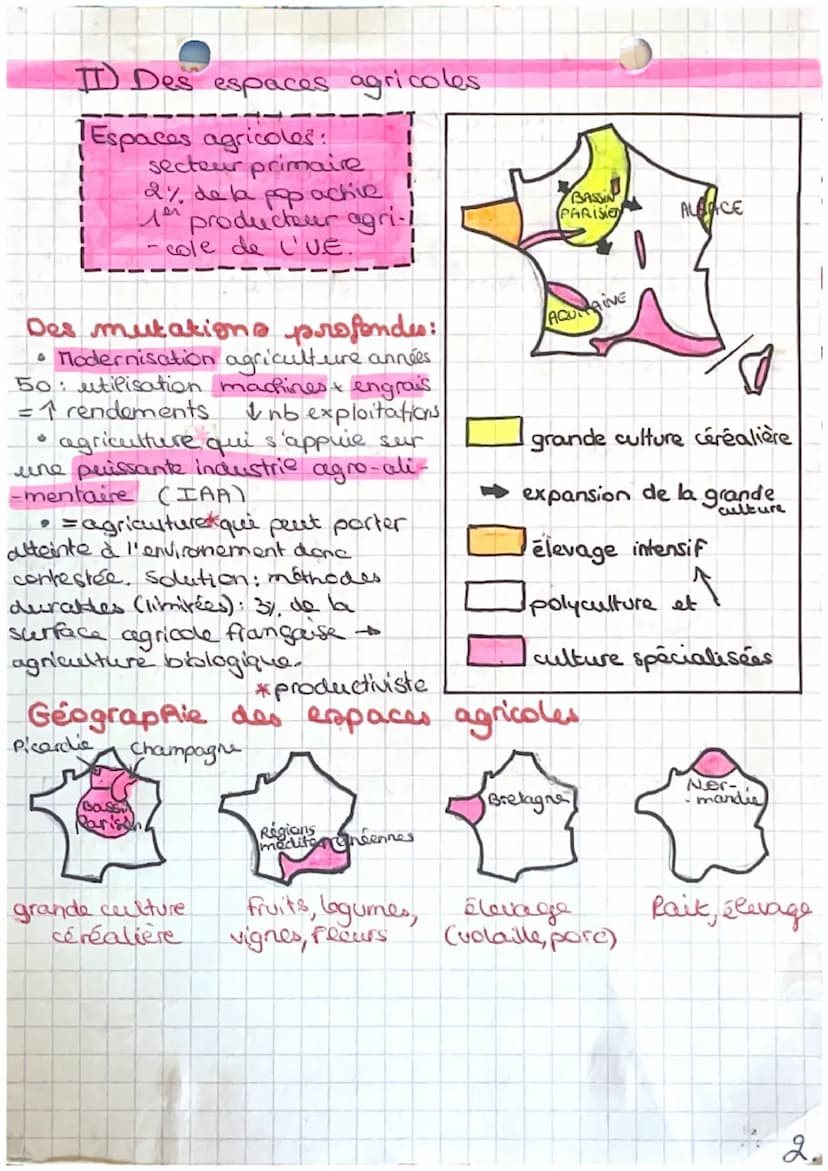 II) Des espaces agricoles
Espaces agricoles:
secteur primaire
2% de la pop active
1er producteur agri-
-cole de l'UE.
Des mutations profondes:
• Modernisation agriculture années
50: utilisation machines + engrais
= ↑ rendements ↓ nb exploitations
• agriculture* qui s'appuie sur
une puissante industrie agro-ali-
-mentaire (IAA)
• = agriculture* qui peut porter
atteinte à l'environement donc
contestée. Solution: méthodes
durables (limitées): 3% de la
surface agricole française →
agriculture biologique.
*productiviste
BASSIN
PARISIEN
ALSACE
AQUITAINE
grande culture céréalière
➡ expansion de la grande
culture
élevage intensif
polyculture et ↑
culture spécialisées
Géographie des espaces agricoles
Picardie Champagne
Bassin
Parisien
grande culture
céréalière
Régions
méditerranéennes
fruits, légumes,
vignes, fleurs
Bretagne
élevage
(volaille, porc)
Nor-
-mandie
lait, élevage
2.